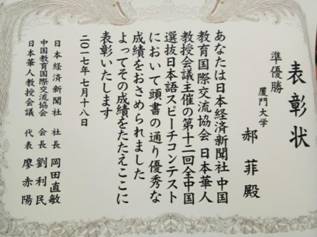 表彰状
準優勝
厦門大学
郝菲殿
あなたは日本経済新聞社 中国
教育国際交流協会 日本華人
教授会議主催の第十二回全中国
選抜日本語スピーチコンテスト
において頭書の通り優秀な
成績をおさめられました
よってその成績をたたえここに
表彰いたします
二〇一七年七月十八日
日本経済新聞社 社長 岡田直敏
中国教育国際交流協会 会長 劉利民
日本華人教授会議 代表 廖赤陽